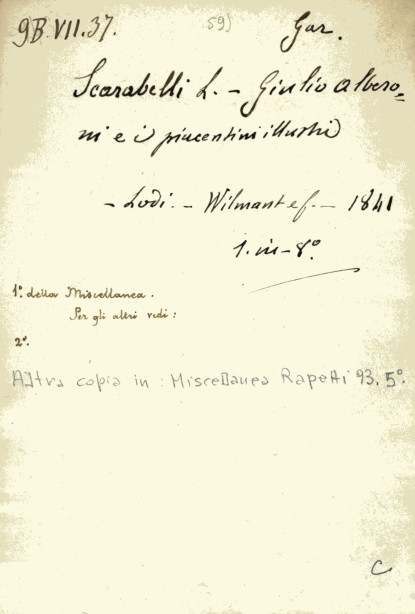 9B.VII.37. 59) Gar.
Scarabelli L. - Giulio Albero-
ni e i piacentini illustri
- Lodi. - Wilmant e f. - 1841
1. in-8°.
1°. della Miscellanea.
Per gli altri vedi:
2°.
Altra copia in: Miscellanea Rapetti 93. 5°.
C